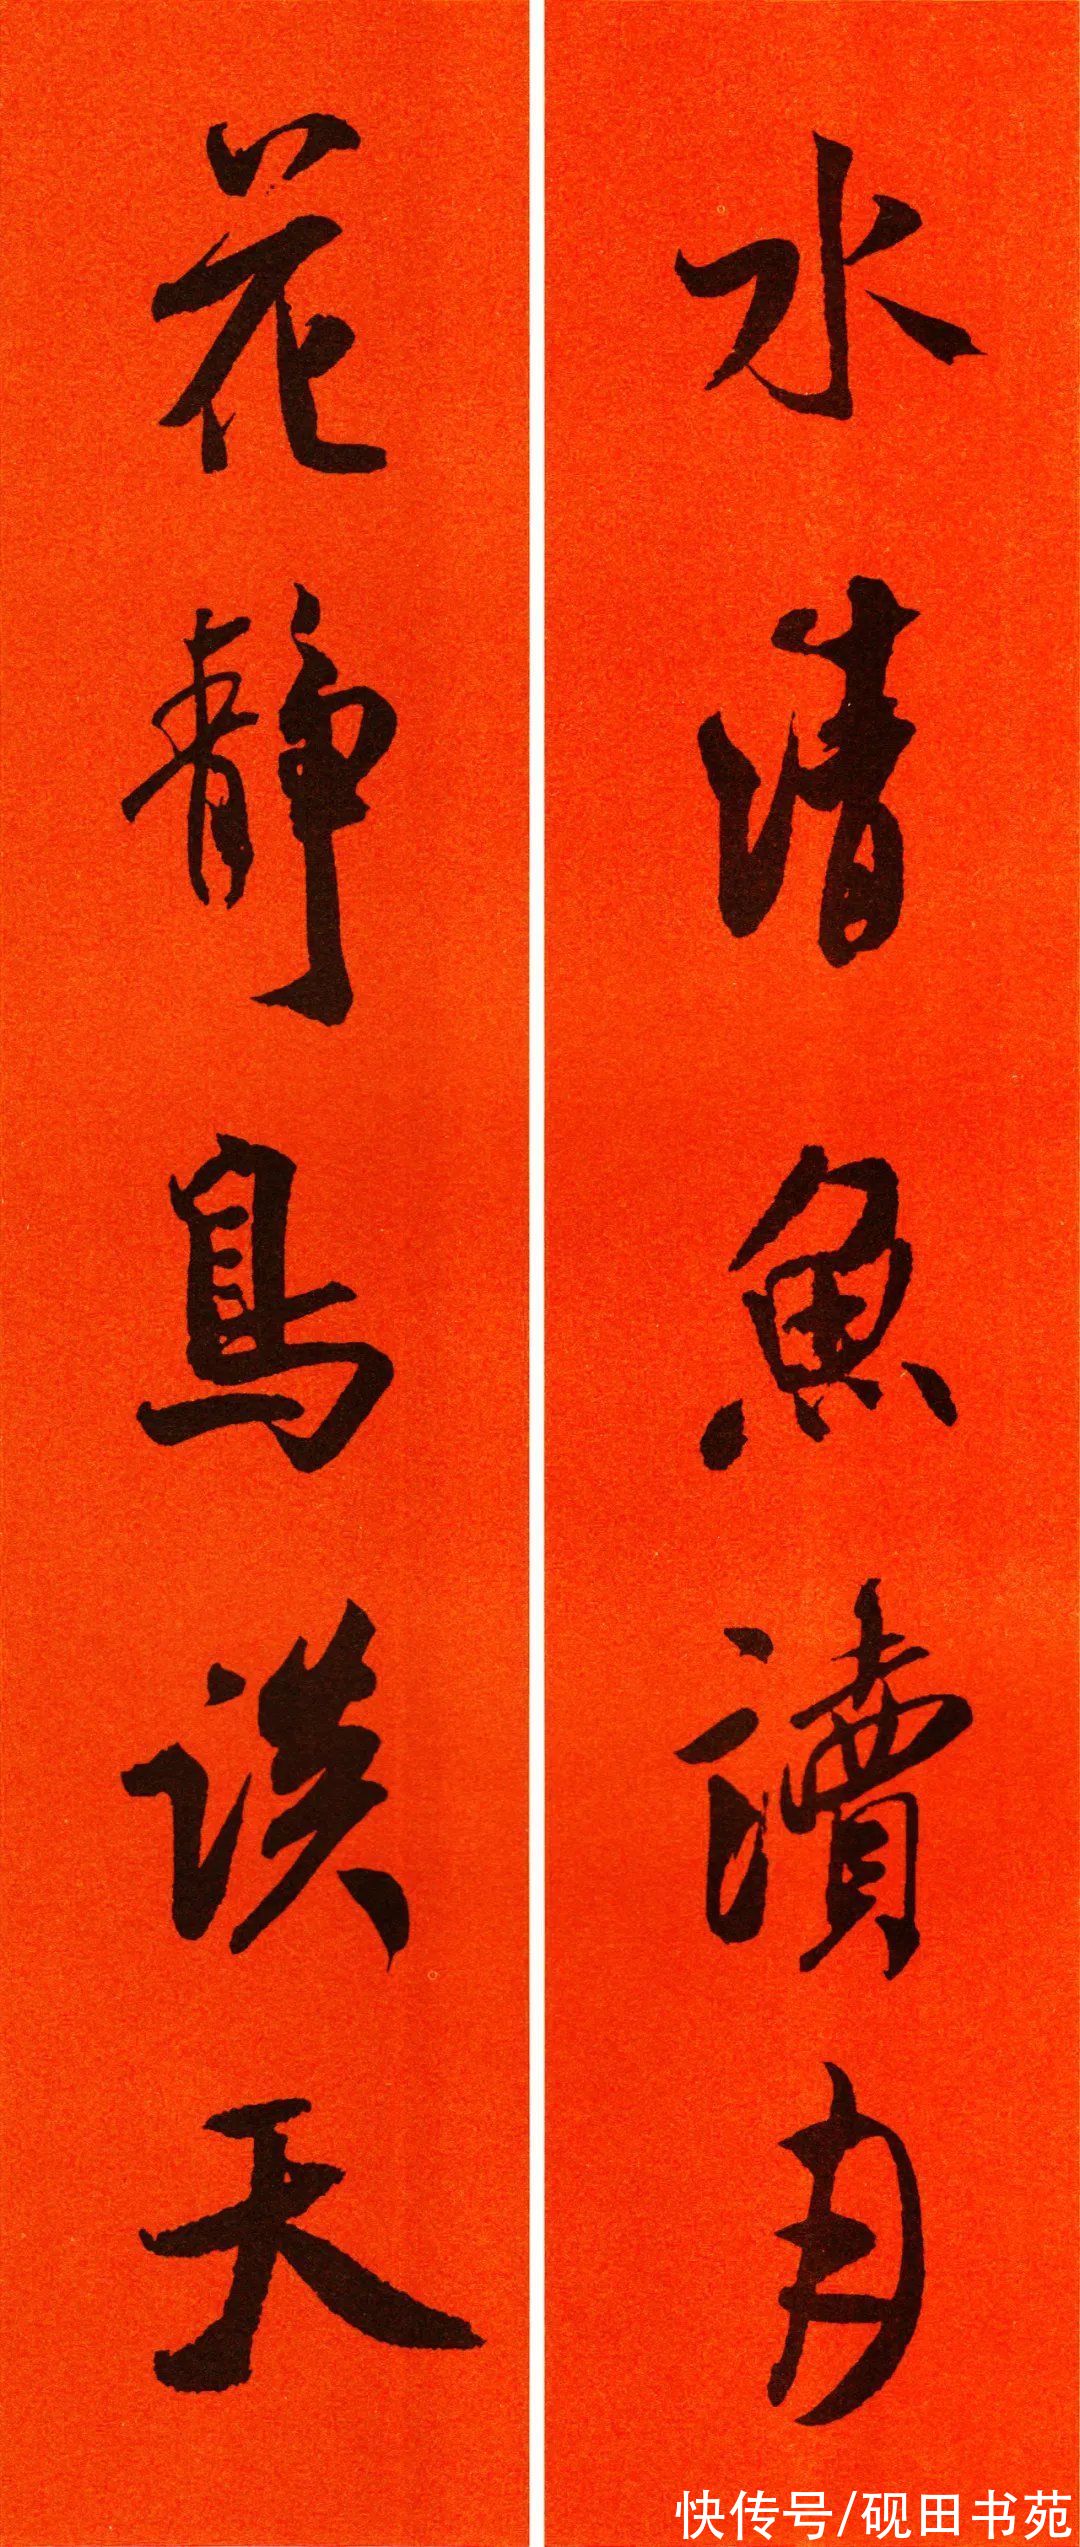 水清魚讀月
花靜鳥談天
快传号/砚田书苑